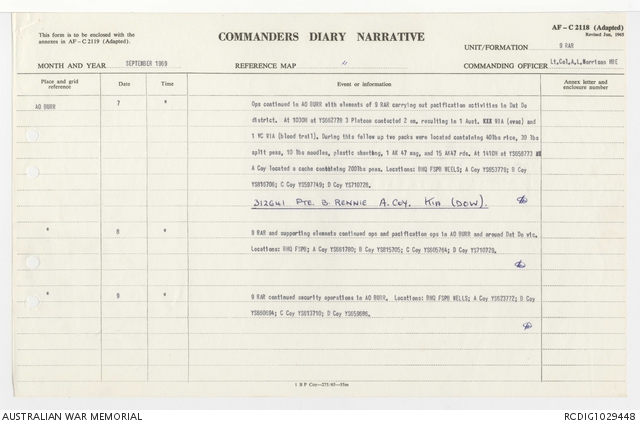 This form is to be enclosed with the
annexes in AF – C 2119 (Adapted).
COMMANDERS DIARY NARRATIVE
AF – C 2118 (Adapted)
Revised Jun, 1965
UNIT/FORMATION 9 RAR
MONTH AND YEAR SEPTEMBER 1969 REFERENCE MAP COMMANDING OFFICER Lt.Col.A.L.Morrison MBE
Place and grid reference Date Time Event or information Annex letter and enclosure number
AO BURR 7 * Ops continued in AO BURR with elements of 9 RAR carrying out pacification activities in Dat Do
district. At 1030H at YS652778 3 Platoon contacted 2 en, resulting in 1 Aust. XXX WIA (evac) and
1 VC WIA (blood trail). During this follow up two packs were located containing 40lbs rice, 30 lbs
split peas, 10 lbs noodles, plastic sheeting, 1 AK 47 mag, and 15 AK47 rds. At 1410H at YS658773
A Coy located a cache containing 200lbs peas. Locations: BHQ FSPB WELLS; A Coy YS653778; B Coy
YS810706; C Coy YS597749; D Coy YS710778.
312641 PTE. B. RENNIE A. COY. KIA (DOW).
" 8 * 9 RAR and supporting elements continued ops and pacification ops in AO BURR in and around Dat Do vic.
Locations: BHQ FSPB; A Coy YS661780; B Coy YS815705; C Coy YS605764; D Coy YS710779.
" 9 * 9 RAR continued security operations in AO BURR. Locations: BHQ FSPB WELLS; A Coy YS623777; B Coy
YS660694; C Coy YS613710; D Coy YS659686.
AUSTRALIAN WAR MEMORIAL
RCDIG1029448